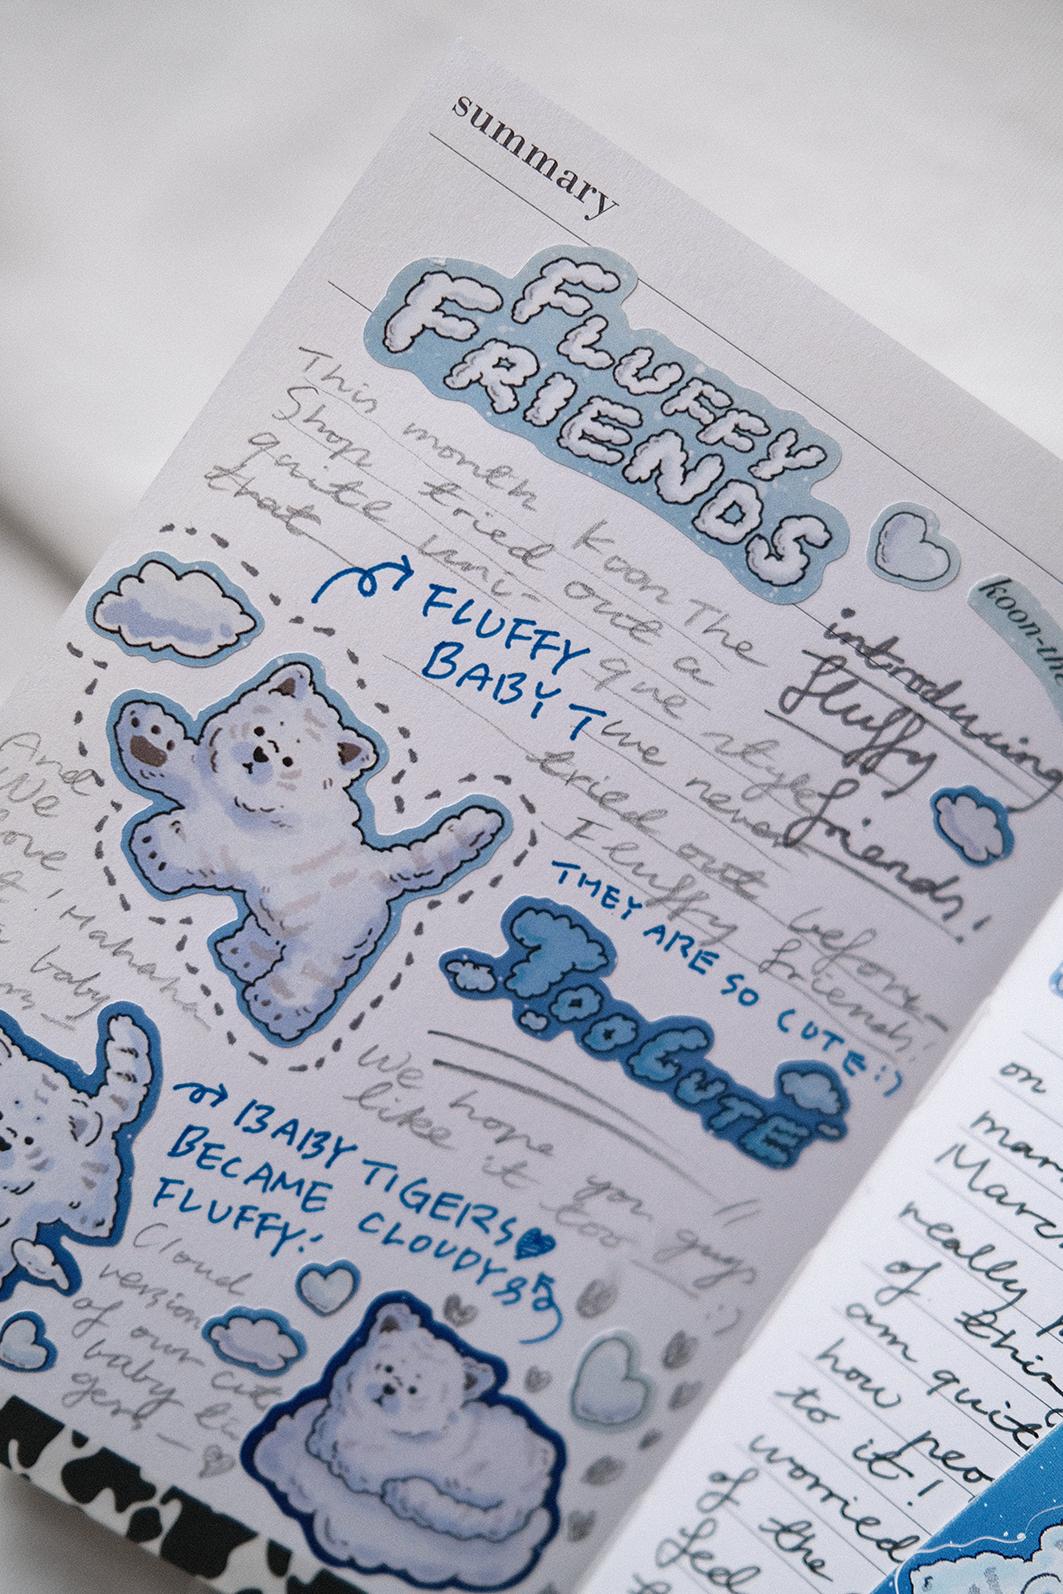 summary
FLUFFY
FRIENDS
koon-th
This month koon The
Shop tried out a
quite uni- que style
that we never
tried out before-
Fluffy friends!
introducing
fluffy
friends!
FLUFFY
BABY T
THEY ARE SO CUTE:)
TOO CUTE
And
We
love
it! Mahana
baby
We hope you guys
like it too :)
BABY TIGERS
BECAME CLOUDY &
FLUFFY!
Cloud
version
of our cute
baby ti-
gers —
on
mar
Marc
really
of thin
am quit
how peo
to it!
worried
of the